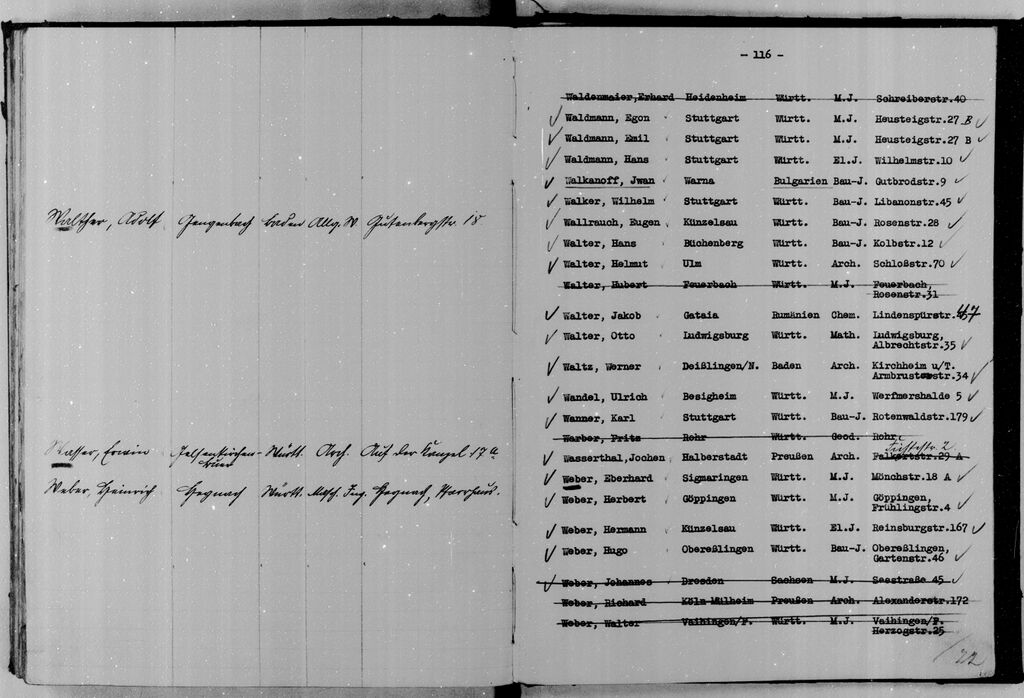 Walther, Adolf Gengenbach Baden Allg. W. Gutenbergstr. 18
Wasser, Erwin Württ. Arch. Auf der Kanzel 17a
Weber, Heinrich Hegnach Württ. Masch. Ing. Hegnach, Pfarrhaus.
- 116 -
Waldenmaier,Erhard Heidenheim Württ. M.J. Schreiberstr.40
Waldmann, Egon Stuttgart Württ. M.J. Heusteigstr.27 B
Waldmann, Emil Stuttgart Württ. M.J. Heusteigstr.27 B
Waldmann, Hans Stuttgart Württ. El.J. Wilhelmstr.10
Walkanoff, Jwan Warna Bulgarien Bau-J. Gutbrodstr.9
Walker, Wilhelm Stuttgart Württ. Bau-J. Libanonstr.45
Wallrauch, Eugen Künzelsau Württ. Bau-J. Rosenstr.28
Walter, Hans Büchenberg Württ. Bau-J. Kolbstr.12
Walter, Helmut Ulm Württ. Arch. Schloßstr.70
Walter, Hubert Feuerbach Württ. M.J. Feuerbach,
Rosenstr.31
Walter, Jakob Gataia Rumänien Chem. Lindenspürstr. 47
Walter, Otto Ludwigsburg Württ. Math. Ludwigsburg,
Albrechtstr.35
Waltz, Werner Deißlingen/N. Baden Arch. Kirchheim u/T.
Armbruststr.34
Wandel, Ulrich Besigheim Württ. M.J. Werfmershalde 5
Wanner, Karl Stuttgart Württ. Bau-J. Rotenwaldstr.179
Warber, Fritz Rohr Württ. Geod. Rohr
Wasserthal,Jochen Halberstadt Preußen Arch. Falkertstr.29 A
Weber, Eberhard Sigmaringen Württ. M.J. Mönchstr.18 A
Weber, Herbert Göppingen Württ. M.J. Göppingen,
Frühlingstr.4
Weber, Hermann Künzelsau Württ. El.J. Reinsburgstr.167
Weber, Hugo Obereßlingen Württ. Bau-J. Obereßlingen,
Gartenstr.46
Weber, Johannes Dresden Sachsen M.J. Seestraße 45
Weber, Richard Köln-Mülheim Preußen Arch. Alexanderstr.172
Weber, Walter Vaihingen/F. Württ. M.J. Vaihingen/F.
Herzogstr.25
22